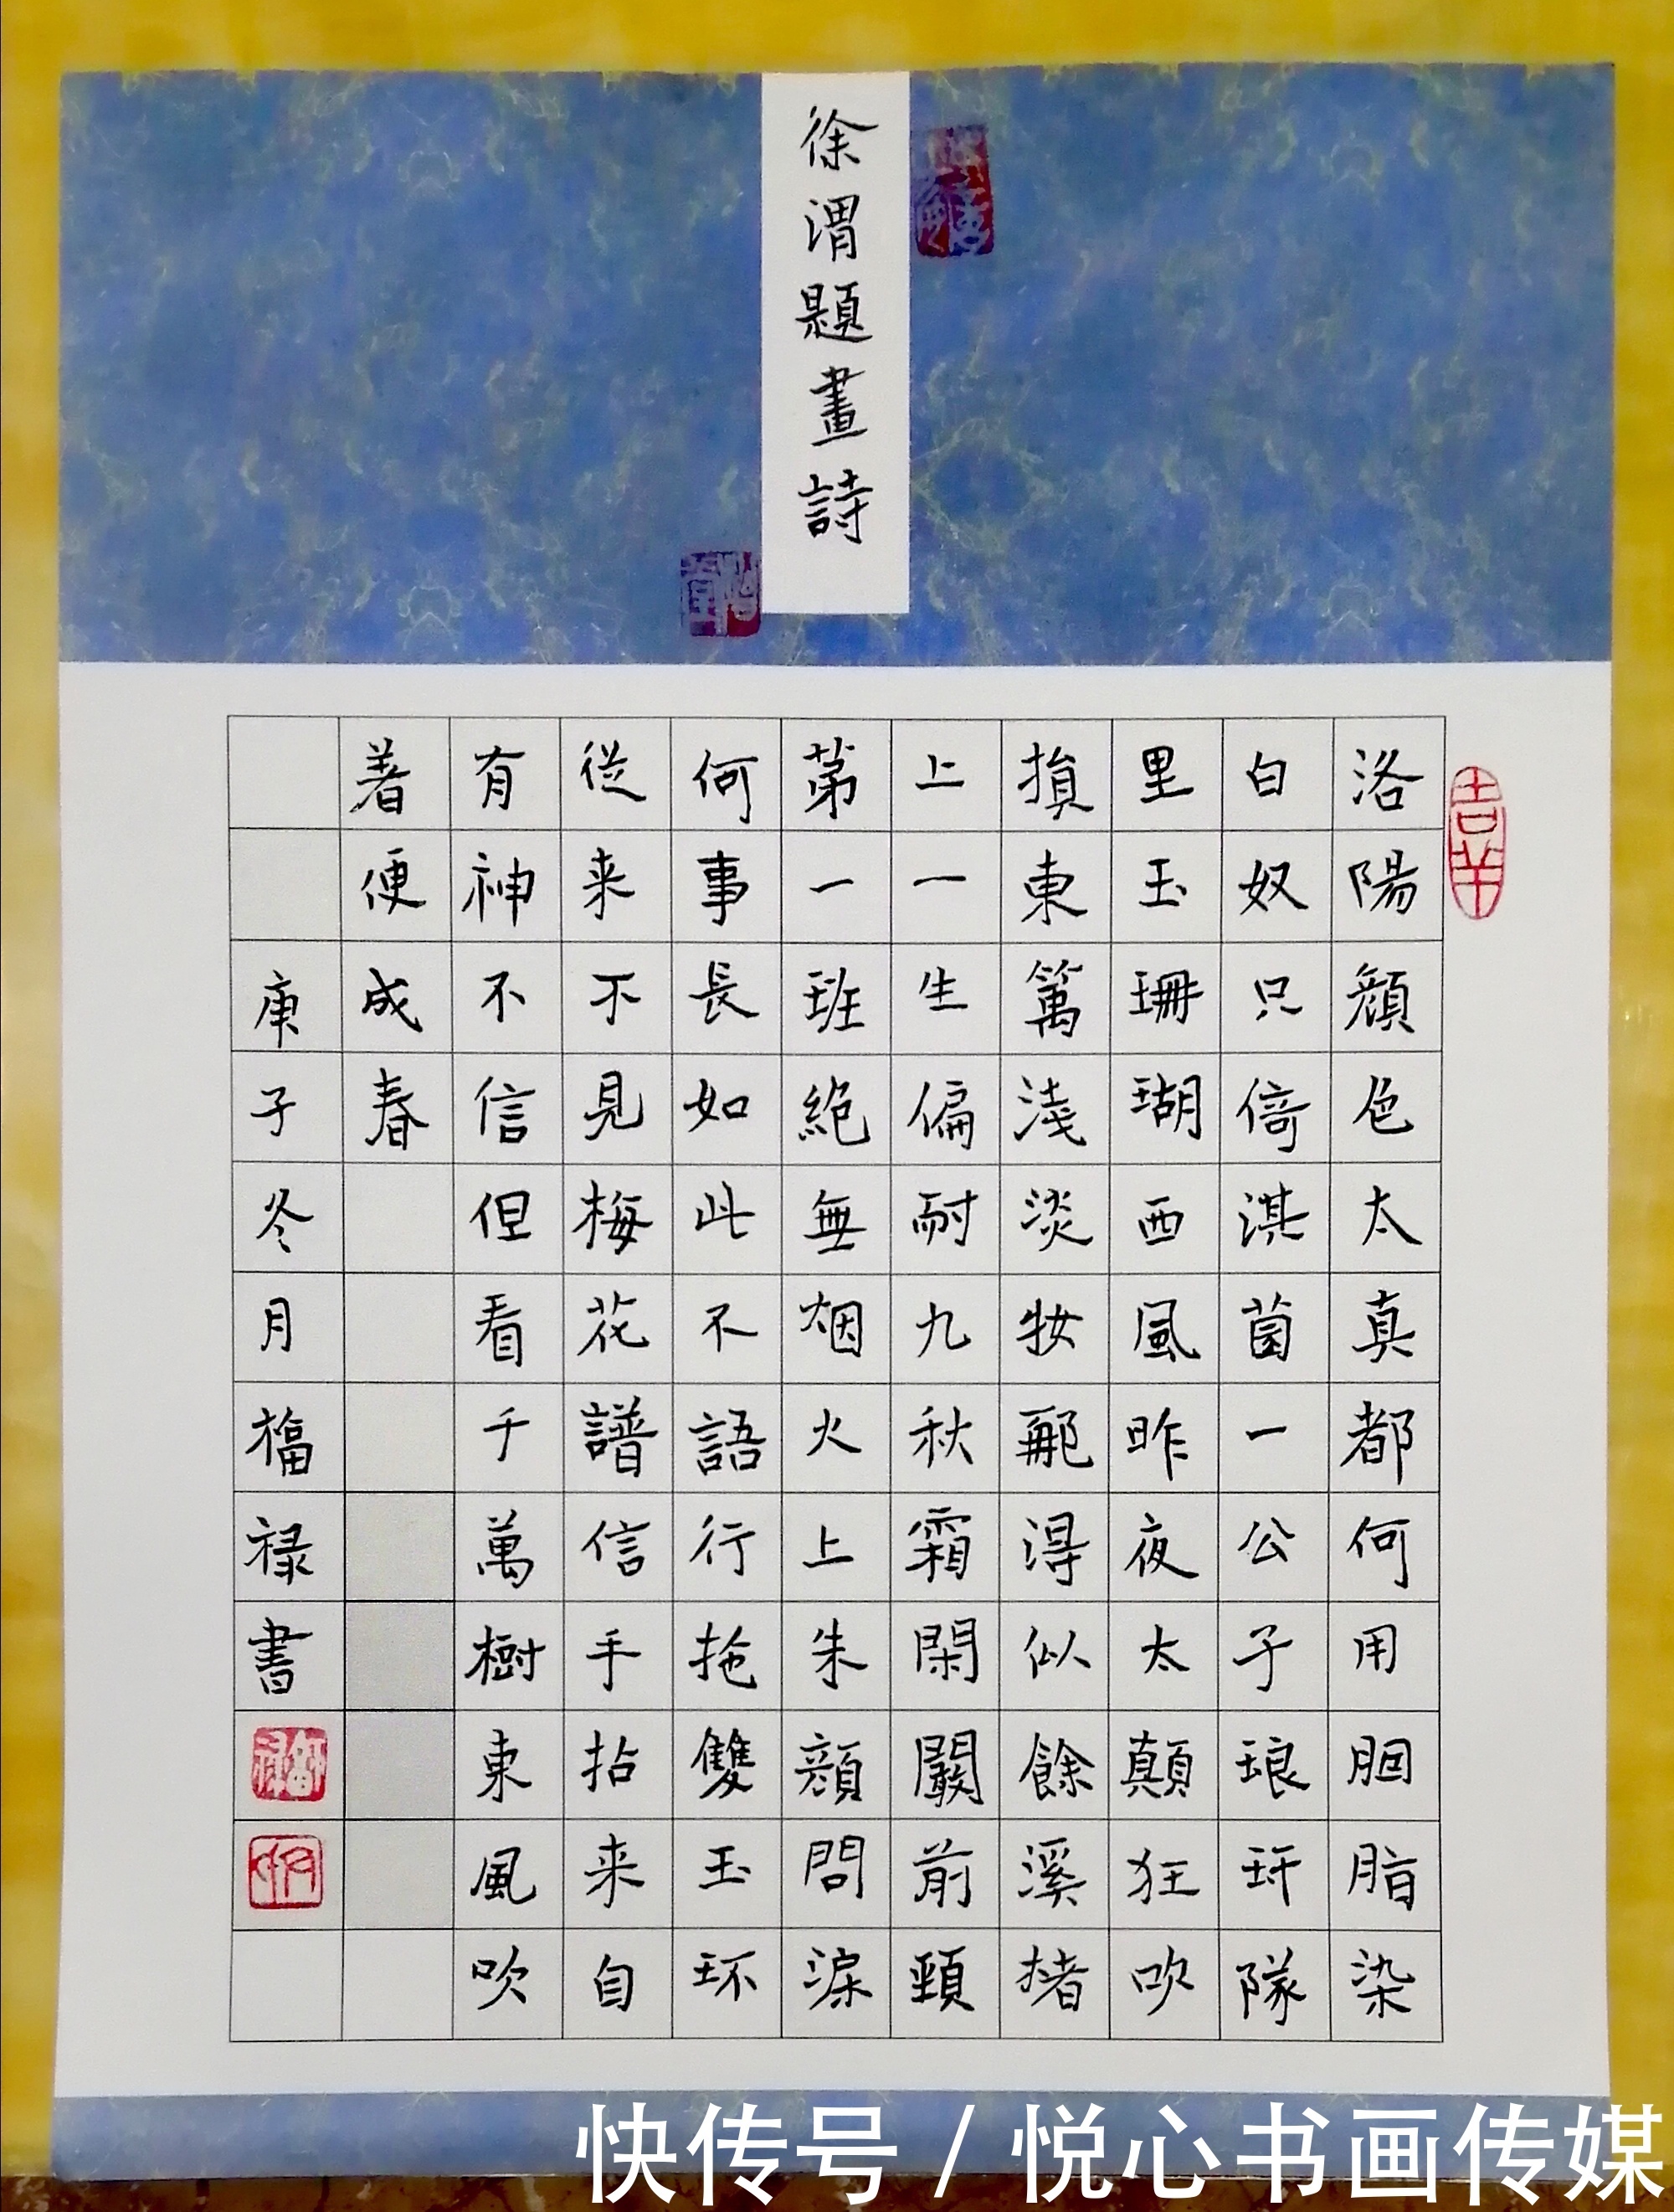 徐渭題畫詩
洛陽顔色太真都何用胭脂染
白奴只倚淇菌一公子琅玕隊
里玉珊瑚西風昨夜太顛狂吹
損東篱淺淡妝那得似餘溪楮
上一生偏耐九秋霜閑闞前頭
第一班絕無烟火上朱顔問渠
何事長如此不語行拖雙玉环
從来不見梅花譜信手拈来自
有神不信但看千萬樹東風吹
著便成春
庚子冬月福禄書
吉羊
快传号 / 悦心书画传媒